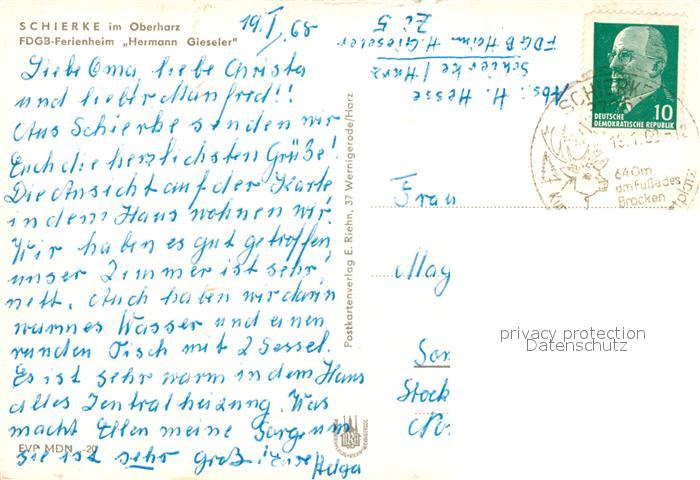 SCHIERKE im Oberharz
FDGB-Ferienheim „Hermann Gieseler"
19.I.65
Liebe Oma, liebe Christa
und lieber Manfred!!
Aus Schierke senden wir
Euch die herzlichsten Grüße!
Die Ansicht auf der Karte
in dem Haus wohnen wir.
Wir haben es gut getroffen,
unser Zimmer ist sehr
nett. Auch haben wir darin
warmes Wasser und einen
runden Tisch mit 2 Sessel.
Es ist sehr warm in dem Haus
alles Zentralheizung. Was
macht Ellen meine Sorge um
sie ist sehr groß! Eure
Helga
EVP MDN -.20
Postkartenverlag E. Riehn, 37 Wernigerode/Harz
Abs: H. Hesse
Schierke / Harz
FDGB Heim H. Gieseler
Zi 5
DEUTSCHE
DEMOKRATISCHE REPUBLIK
10
SCHIERKE
640m
am Fuße des
Brocken
Frau
Mag
Son
Stock
privacy protection
Datenschutz